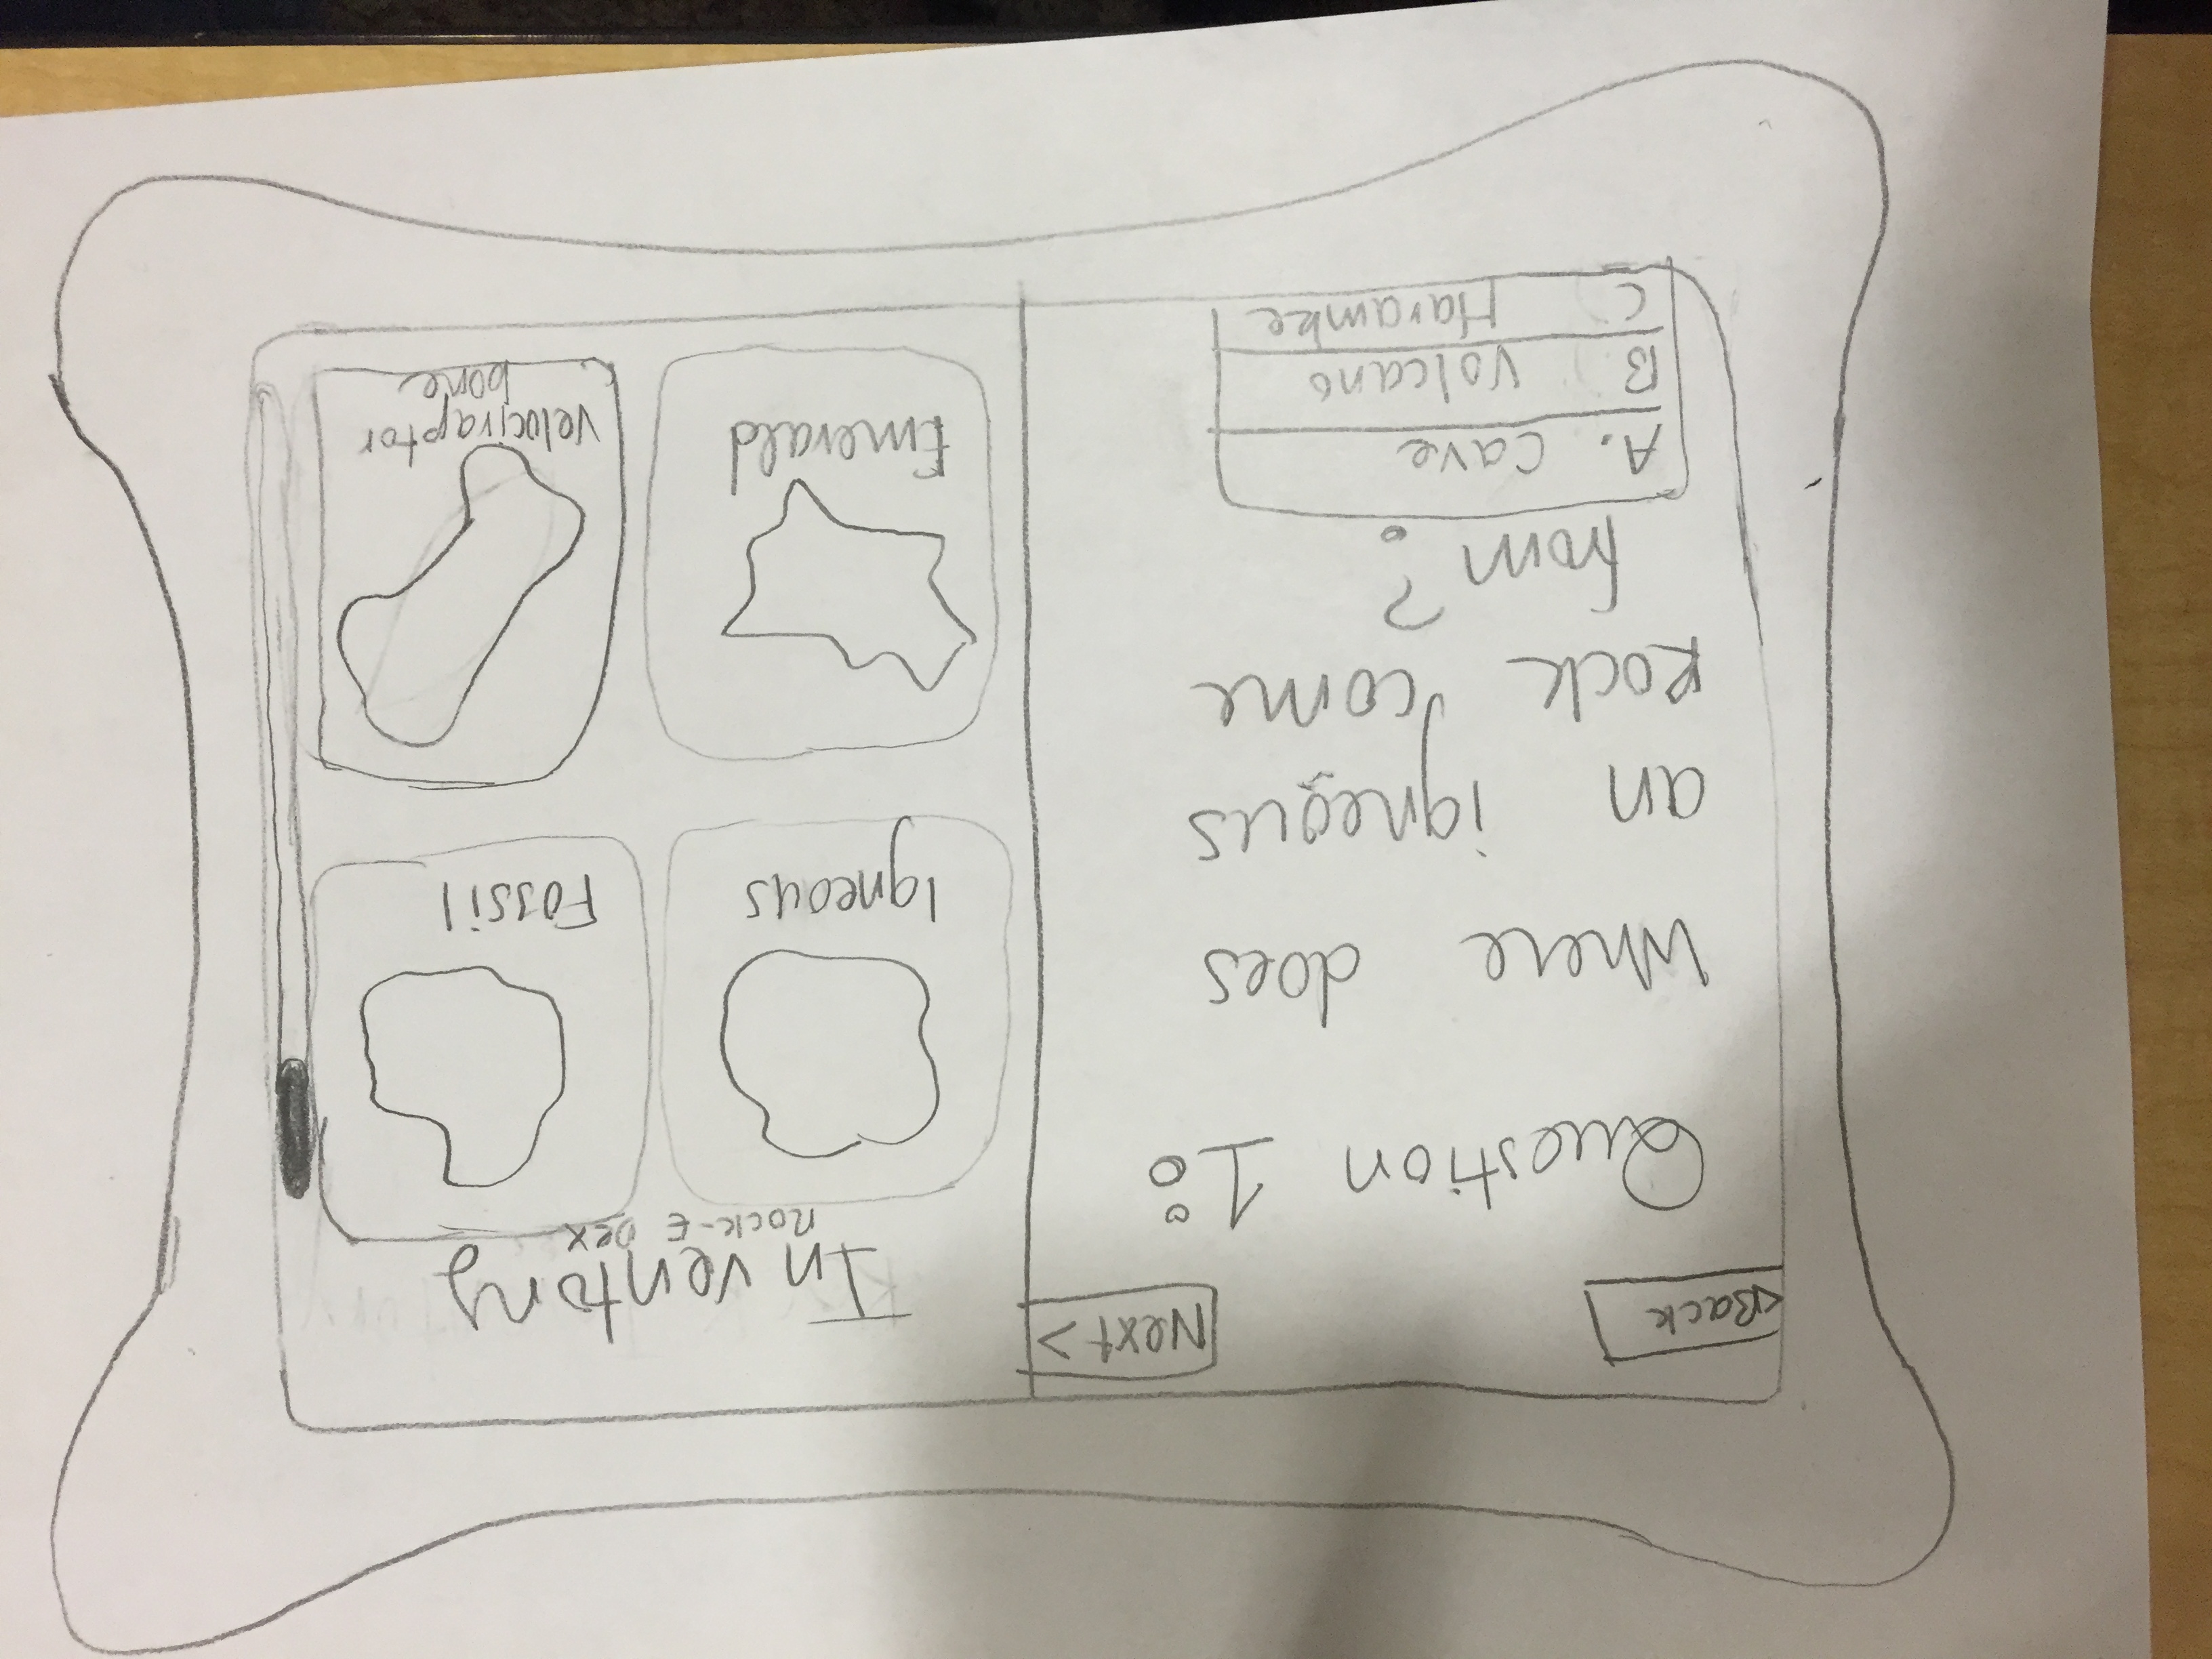 <Back
Next >
Question 1:
Where does
an igneous
Rock come
from?
A. Cave
B Volcano
C Haramke
Inventory
Rock-E Dex
Igneous
Fossil
Emerald
Velociraptor
bone